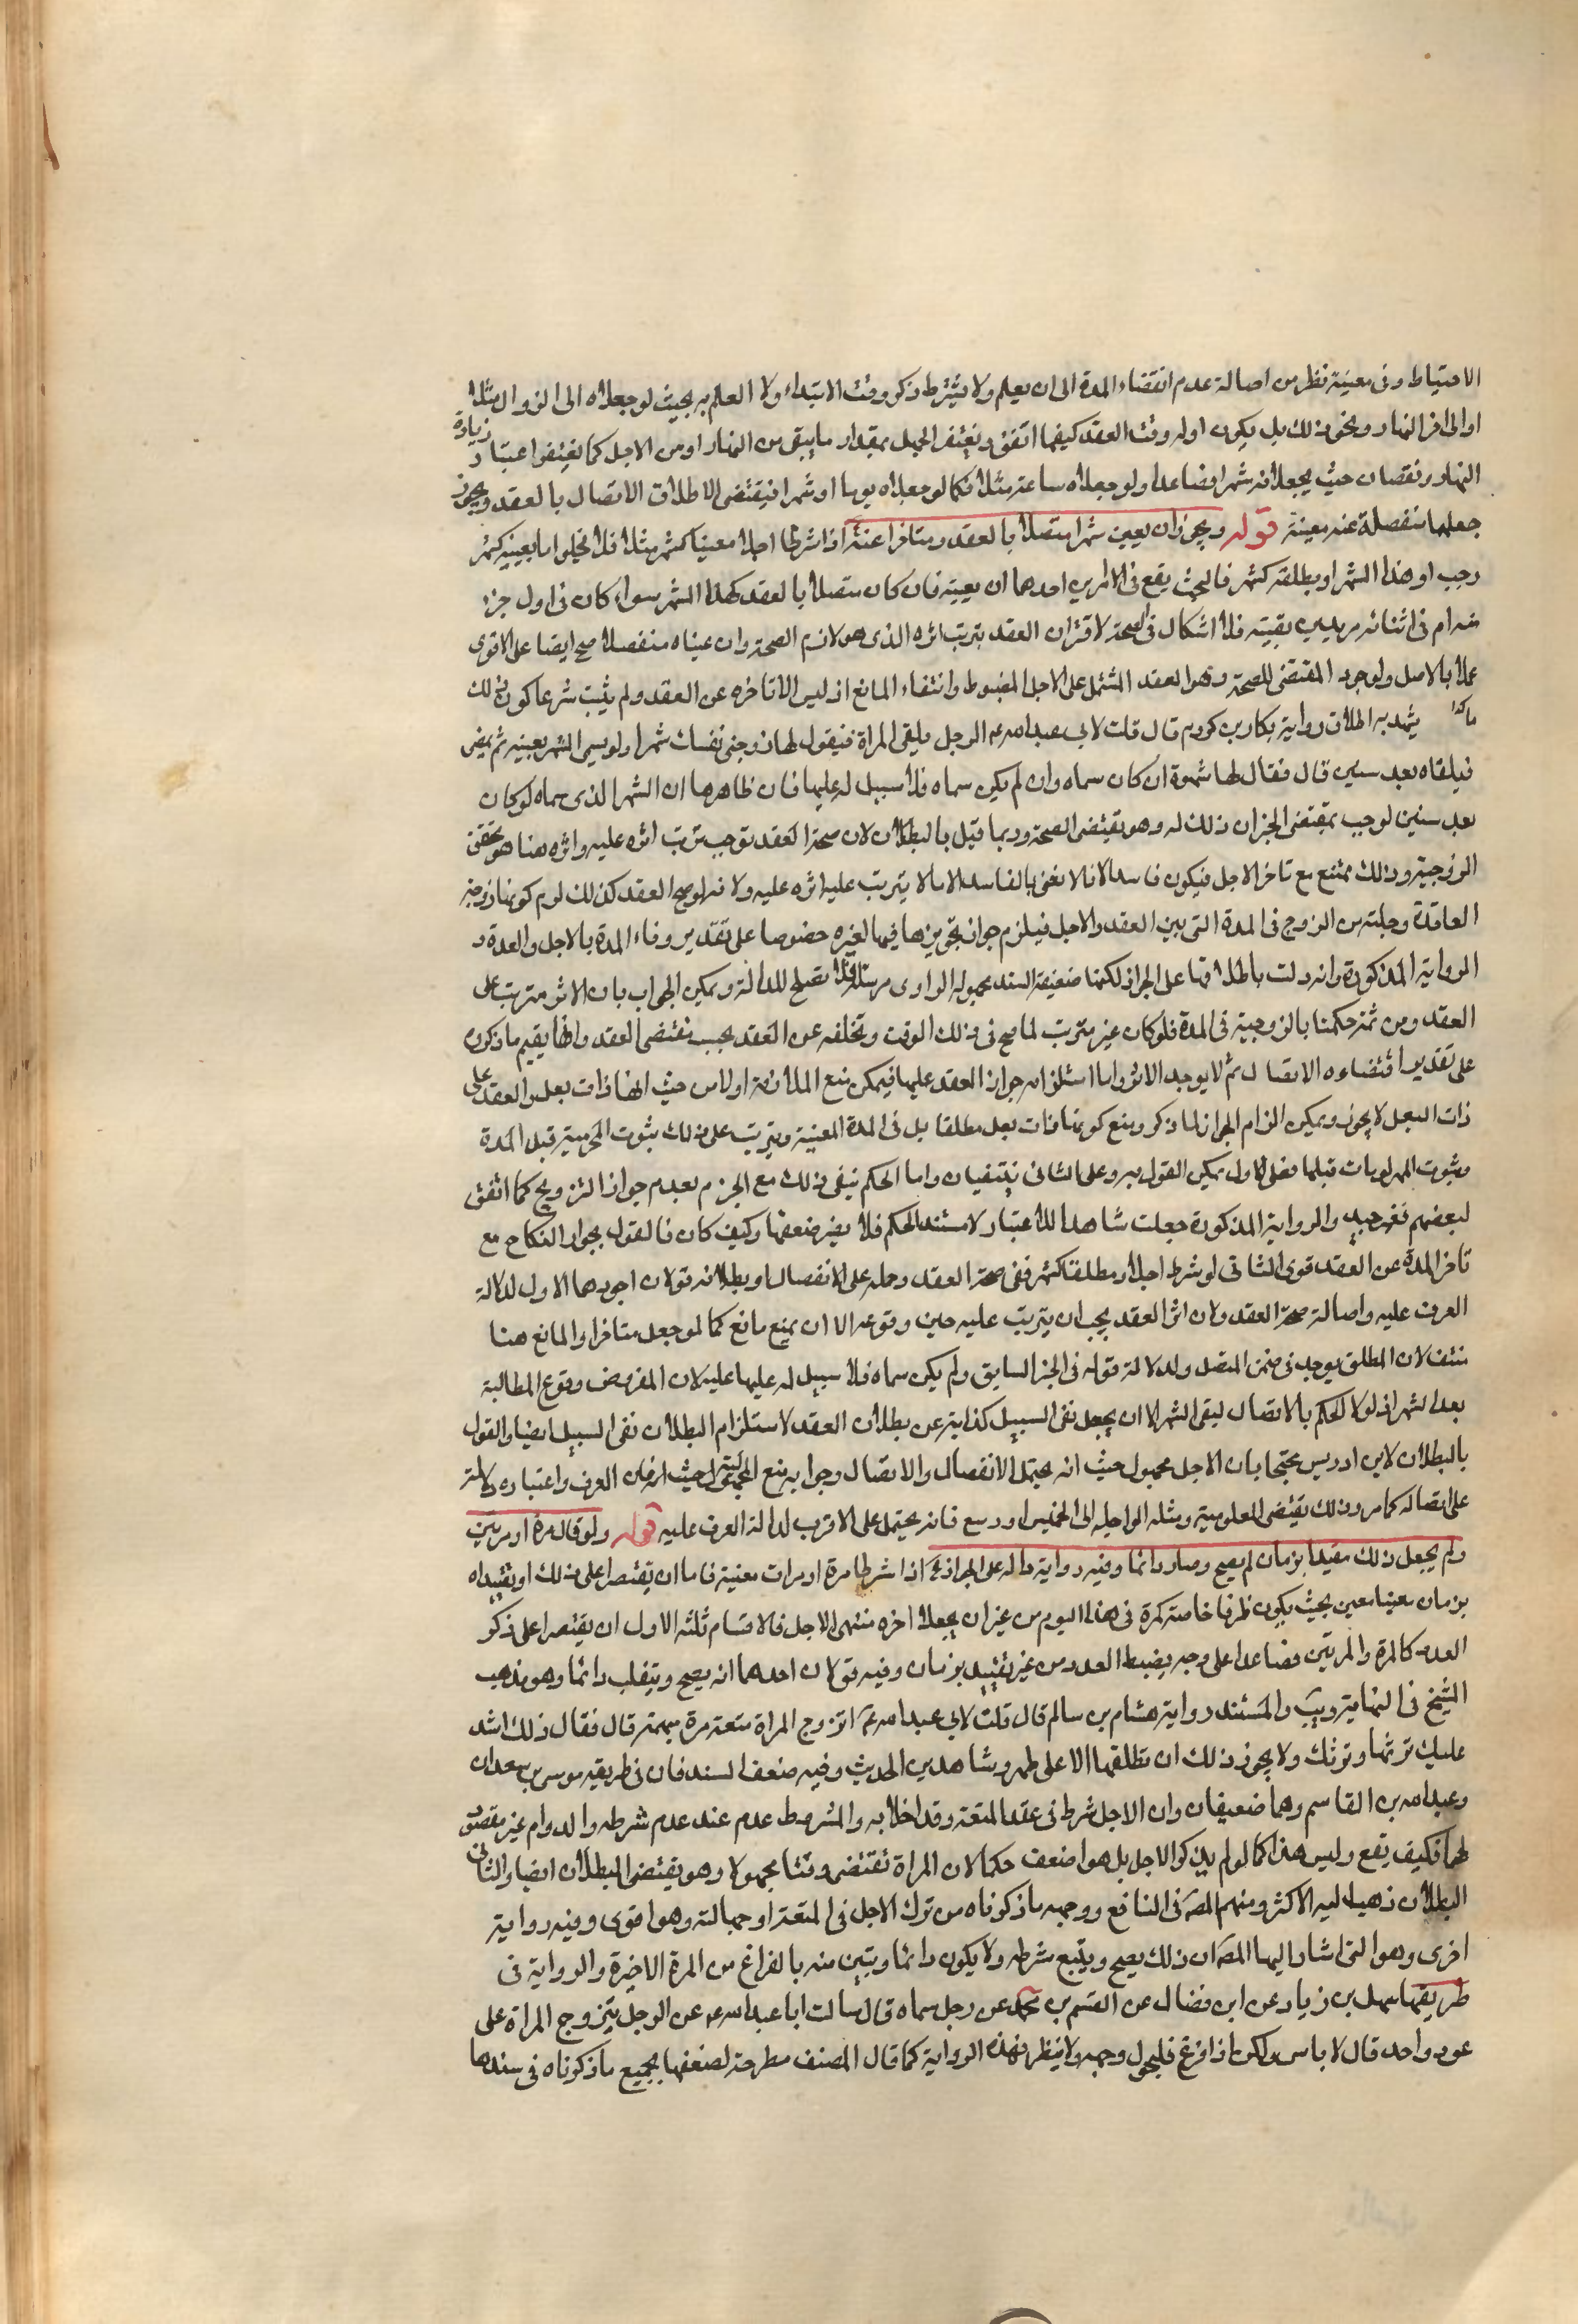 الاحتياط وفى معينة نظر من اصالة عدم انقضاء المدة الى ان يعلم ولا يشترط ذكر وقت الابتداء ولا العلم به بحيث لو جعلاه الى الزوال مثلا
او الى اخر النهار ونحو ذلك بل يكون اوله وقت العقد كيفما اتفق ويغتفر الجهل بمقدار ما يبقى من النهار او من الاجل كما يغتفر اعتبار زيادة
النهار ونقصان حيث يجعلانه شهرا فصاعدا ولو جعلاه ساعة مثلا فكما لو جعلاه يوما او شهرا فيقتضى الاطلاق الاتصال بالعقد ويجوز
جعلها منفصلة عنه معينة قوله ويجوز ان يعين شهرا متصلا بالعقد ومتاخرا عنه اذا شرطا اجلا معينا كشهر مثلا فلا يخلوا اما بعينه كشهر
رجب او هذا الشهر او يطلقه كشهر فالبحث يقع فى الامرين احدهما ان يعينه فان كان متصلا بالعقد كهذا الشهر سواء كان فى اول جزء
منه ام فى اثنائه مريدين بقيته فلا اشكال فى الصحة لاقتران العقد بترتب اثره الذى هو لازم الصحة وان عيناه منفصلا صح ايضا على الاقوى
عملا بالاصل ولوجود المقتضى للصحة وهو العقد المشتمل على الاجل المضبوط وانتفاء المانع اذ ليس الا تاخره عن العقد ولم يثبت شرعا كون ذلك
يشهد به اطلاق رواية بكار بن كردم قال قلت لابى عبد الله ع الرجل يلقى المراة فيقول لها زوجنى نفسك شهرا ولو يسمى الشهر بعينه ثم يمضى
فيلقاه بعد سنين قال فقال لها شهوة ان كان سماه وان لم يكن سماه فلا سبيل له عليها فان ظاهرها ان الشهر الذى سماه لو كان
بعد سنين لوجب بمقتضى الخبر ان ذلك له وهو يقتضى الصحة وربما قيل بالبطلان لان صحة العقد توجب ترتب اثره عليه واثره هنا هو تحقق
الزوجية وذلك ممتنع مع تاخر الاجل فيكون فاسدا لانا لا نعنى بالفاسد الا ما لا يترتب عليه اثره عليه ولانه لو صح العقد كذلك لزم كونها زوجة
العاقدة وخلية من الزوج فى المدة التى بين العقد والاجل فيلزم جواز تجويزها فيها لغيره خصوصا على تقدير وفاء المدة بالاجل والعدة و
الرواية المذكورة وان دلت باطلاقها على الجواز لكنها ضعيفة السند بجهولة الراوى مرسلة فلا تصلح للدلالة ويمكن الجواب بان الاثر مترتب على
العقد ومن ثم حكمنا بالزوجية فى المدة فلو كان غير مترتب لما صح فى ذلك الوقت وتخلفه عن العقد بحسب مقتضى العقد وانما يقيم ما ذكروه
على تقدير اقتضاءه الاتصال ثم لا يوجد الاثر واما استلزامه جواز العقد عليها فيمكن منع الملازمة اولا من حيث انها ذات بعل والعقد على
ذات البعل لا يجوز ويمكن الزام الجواز لما ذكر ومنع كونها ذات بعل مطلقا بل فى المدة المعينة ويترتب على ذلك ثبوت المحرمية قبل المدة
وثبوت المهر لو مات قبلها فعلى الاول يمكن القول به وعلى الثانى ينتفيان واما الحكم بنفى ذلك مع الجزم بعدم جواز التزويج كما اتفق
لبعضهم فغير جيد والرواية المذكورة جعلت شاهدا للاعتبار لا مستند الحكم فلا يضر ضعفها وكيف كان فالقول بجواز النكاح مع
تاخر المدة عن العقد قوى الثانى لو شرط اجلا مطلقا كشهر ففى صحة العقد وحمله على الانفصال او بطلانه قولان اجودهما الاول لدلالة
العرف عليه واصالة صحة العقد ولان اثر العقد يجب ان يترتب عليه حين وقوعه الا ان يمنع مانع كما لو جعل متاخرا والمانع هنا
منتف لان المطلق يوجد فى ضمن المتصل ولدلالة قوله فى الخبر السابق ولم يكن سماه فلا سبيل له عليها عليه لان المفروض وقوع المطالبة
بعد الشهر اذ لولا الحكم بالاتصال لبقى الشهر الا ان يجعل نفى السبيل كناية عن بطلان العقد لاستلزام البطلان نفى السبيل ايضا والقول
بالبطلان لابن ادريس محتجا بان الاجل مجهول حيث انه يحتمل الانفصال والاتصال وجوابه منع المجهولية حيث العرف واعتباره دلالته
على اتصاله كما مر وذلك يقتضى المعلومية ومثله الواجله الى الخميس او ربيع فانه يحتمل على الاقرب لدلالة العرف عليه قوله ولو قال مرة او مرتين
ولم يجعل ذلك مقيدا بزمان لم يصح وصار دائما وفيه رواية دالة على الجواز اذا شرطا مرة او مرات معينة فاما ان يقتصرا على ذلك او يقيداه
بزمان معينا معين بحيث يكون ظرفا خاصة كمرة فى هذا اليوم من غير ان يجعلا اخره منتهى الاجل فالاقسام ثلثة الاول ان يقتصرا على ذكر
العدد كالمرة والمرتين فصاعدا على وجه يضبط العدد من غير تقييد بزمان وفيه قولان احدهما انه يصح وينقلب دائما وهو مذهب
الشيخ فى النهاية ويب والمستند رواية هشام بن سالم قال قلت لابى عبد الله ع اتزوج المراة متعة مرة مبهمة قال فقال ذلك اشد
عليك ترثها وترثك ولا يجوز ذلك ان تطلقها الا على طهر وشاهدين الحديث وفيه ضعف السند فان فى طريقه موسى بن سعدان
وعبد الله بن القاسم وهما ضعيفان وان الاجل شرط فى عقد المتعة وقد اخلا به والمشروط عدم عند عدم شرطه والدوام غير مقصود
لهما فكيف يقع وليس هذا كما لو لم يذكر الاجل بل هو اضعف حكما لان المراة تقتضى وقتا مجهولا وهو يقتضى البطلان ايضا والثانى
البطلان ذهب اليه الاكثر ومنهم المصه فى النافع ووجهه ما ذكرناه من ترك الاجل فى المتعة او جهالته وهو اقوى وفيه رواية
اخرى وهو التى اشار اليها المصه ان ذلك يصح ويتبع شرطه ولا يكون دائما وتبين منه بالفراغ من المرة الاخيرة والرواية فى
طريقها سهل بن زياد عن ابن فضال عن القسم بن محمد عن رجل سماه قال سالت ابا عبد الله ع عن الرجل يتزوج المراة على
عود واحد قال لا باس ولكن اذا فرغ فليحول وجهه ولا ينظر فهذه الرواية كما قال المصنف مطرحة لضعفها بجميع ما ذكرناه فى سندها